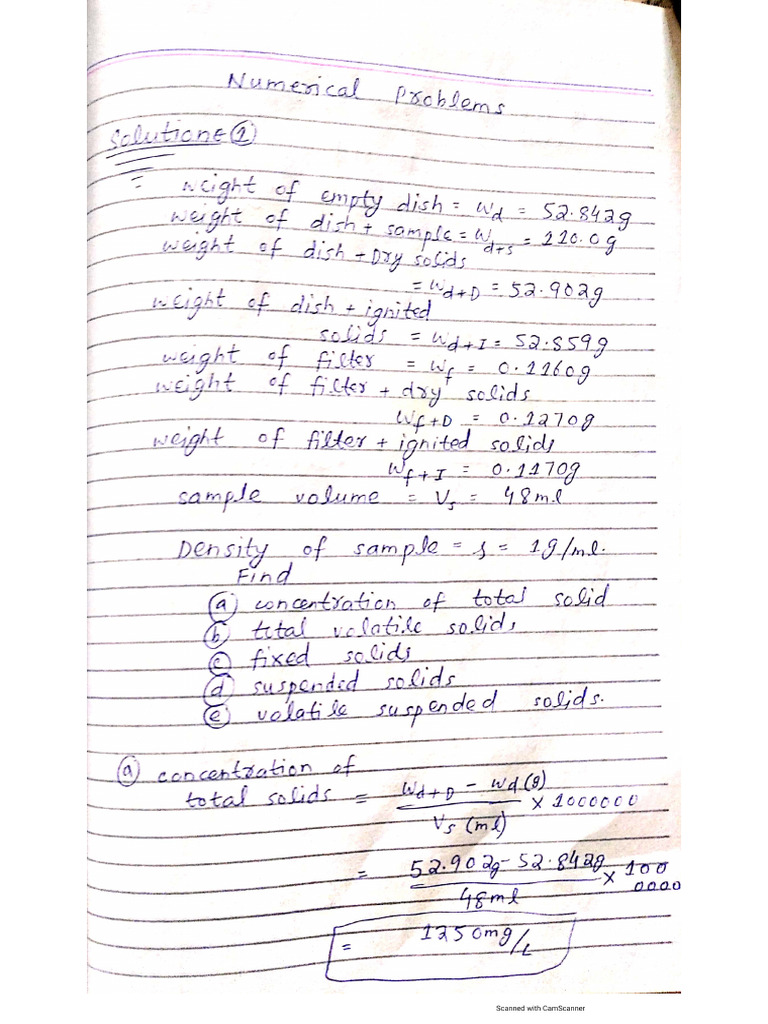 Numerical Problems
Solution ①
weight of empty dish = Wd = 52.842g
weight of dish + sample = Wd+s = 110.0g
weight of dish + Dry solids
= Wd+D = 52.902g
weight of dish + ignited
solids = Wd+I = 52.859g
weight of filter = Wf = 0.1160g
weight of filter + dry solids
Wf+D = 0.1270g
weight of filter + ignited solids
Wf+I = 0.1170g
sample volume = Vs = 48ml
Density of sample = = 1g/ml.
Find
ⓐ concentration of total solid
ⓑ total volatile solids
ⓒ fixed solids
ⓓ suspended solids
ⓔ volatile suspended solids.
ⓐ concentration of
total solids = Wd+D - Wd(g) / Vs (ml) × 1000000
= 52.902g - 52.842g / 48ml × 100 0000
= 1250mg/L
Scanned with CamScanner